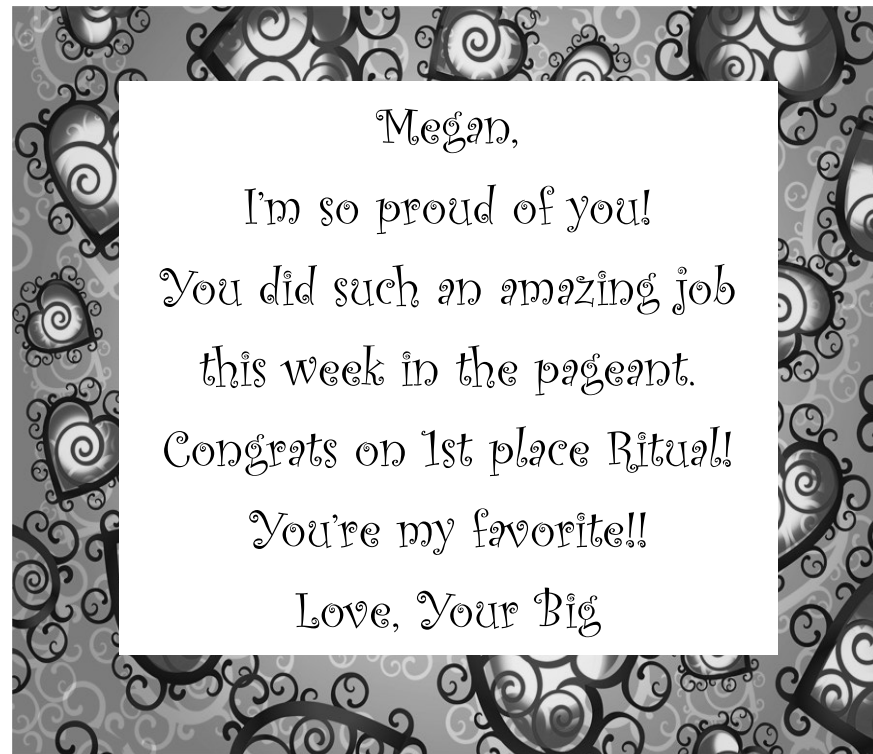 Megan,
I'm so proud of you!
You did such an amazing job
this week in the pageant.
Congrats on 1st place Ritual!
You're my favorite!!
Love, Your Big